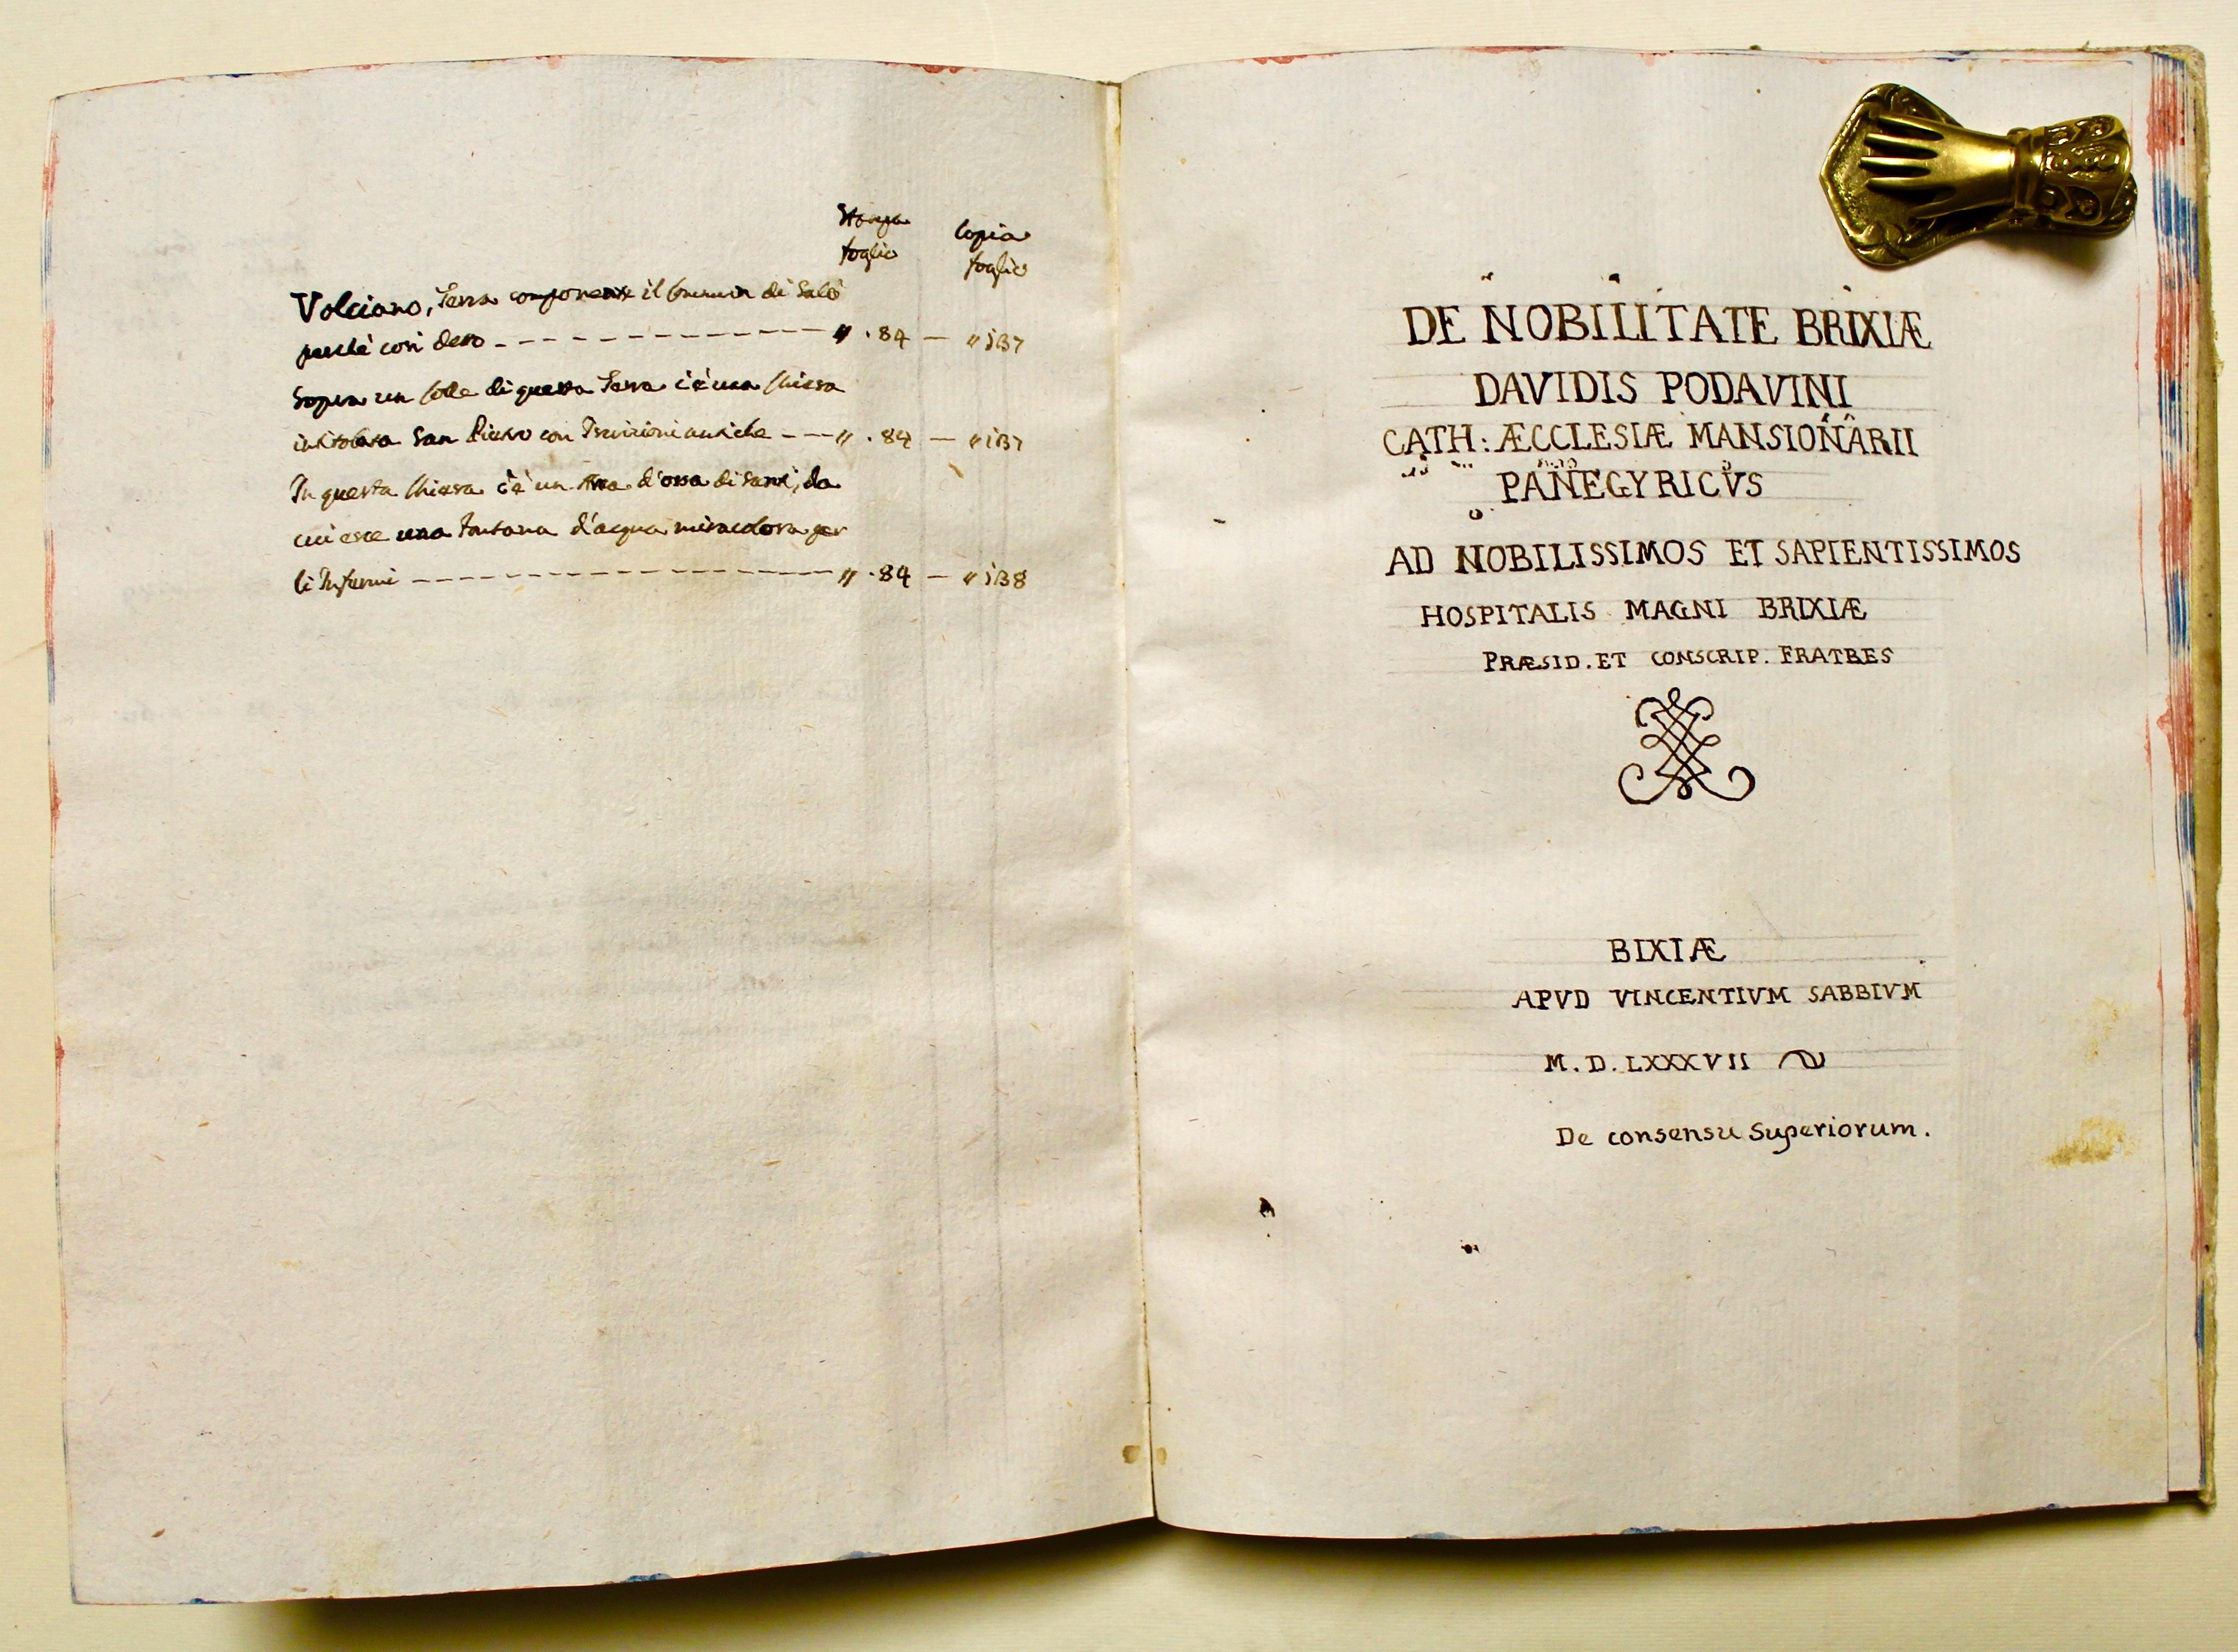 Stampa Copia
foglio foglio
Volciano, Terra componente il Comun di Salò
perchè così deto - - - - - - - - - - - - - - - " . 84 - " 137
Sopra un Colle di questa Terra c'è una Chiesa
intitolata San Pietro con Iscrizioni antiche - - - " . 84 - " 137
In questa Chiesa c'è un Arca d'ossa di Santi, da
cui esce una Fontana d'acqua miracolosa per
li Infermi - - - - - - - - - - - - - - - - - - " . 84 - " 138
DE NOBILITATE BRIXIÆ
DAVIDIS PODAVINI
CATH: ÆCCLESIÆ MANSIONARII
PANEGYRICVS
AD NOBILISSIMOS ET SAPIENTISSIMOS
HOSPITALIS MAGNI BRIXIÆ
PRÆSID. ET CONSCRIP. FRATRES
BIXIÆ
APVD VINCENTIVM SABBIVM
M. D. LXXXVII
De consensu Superiorum.